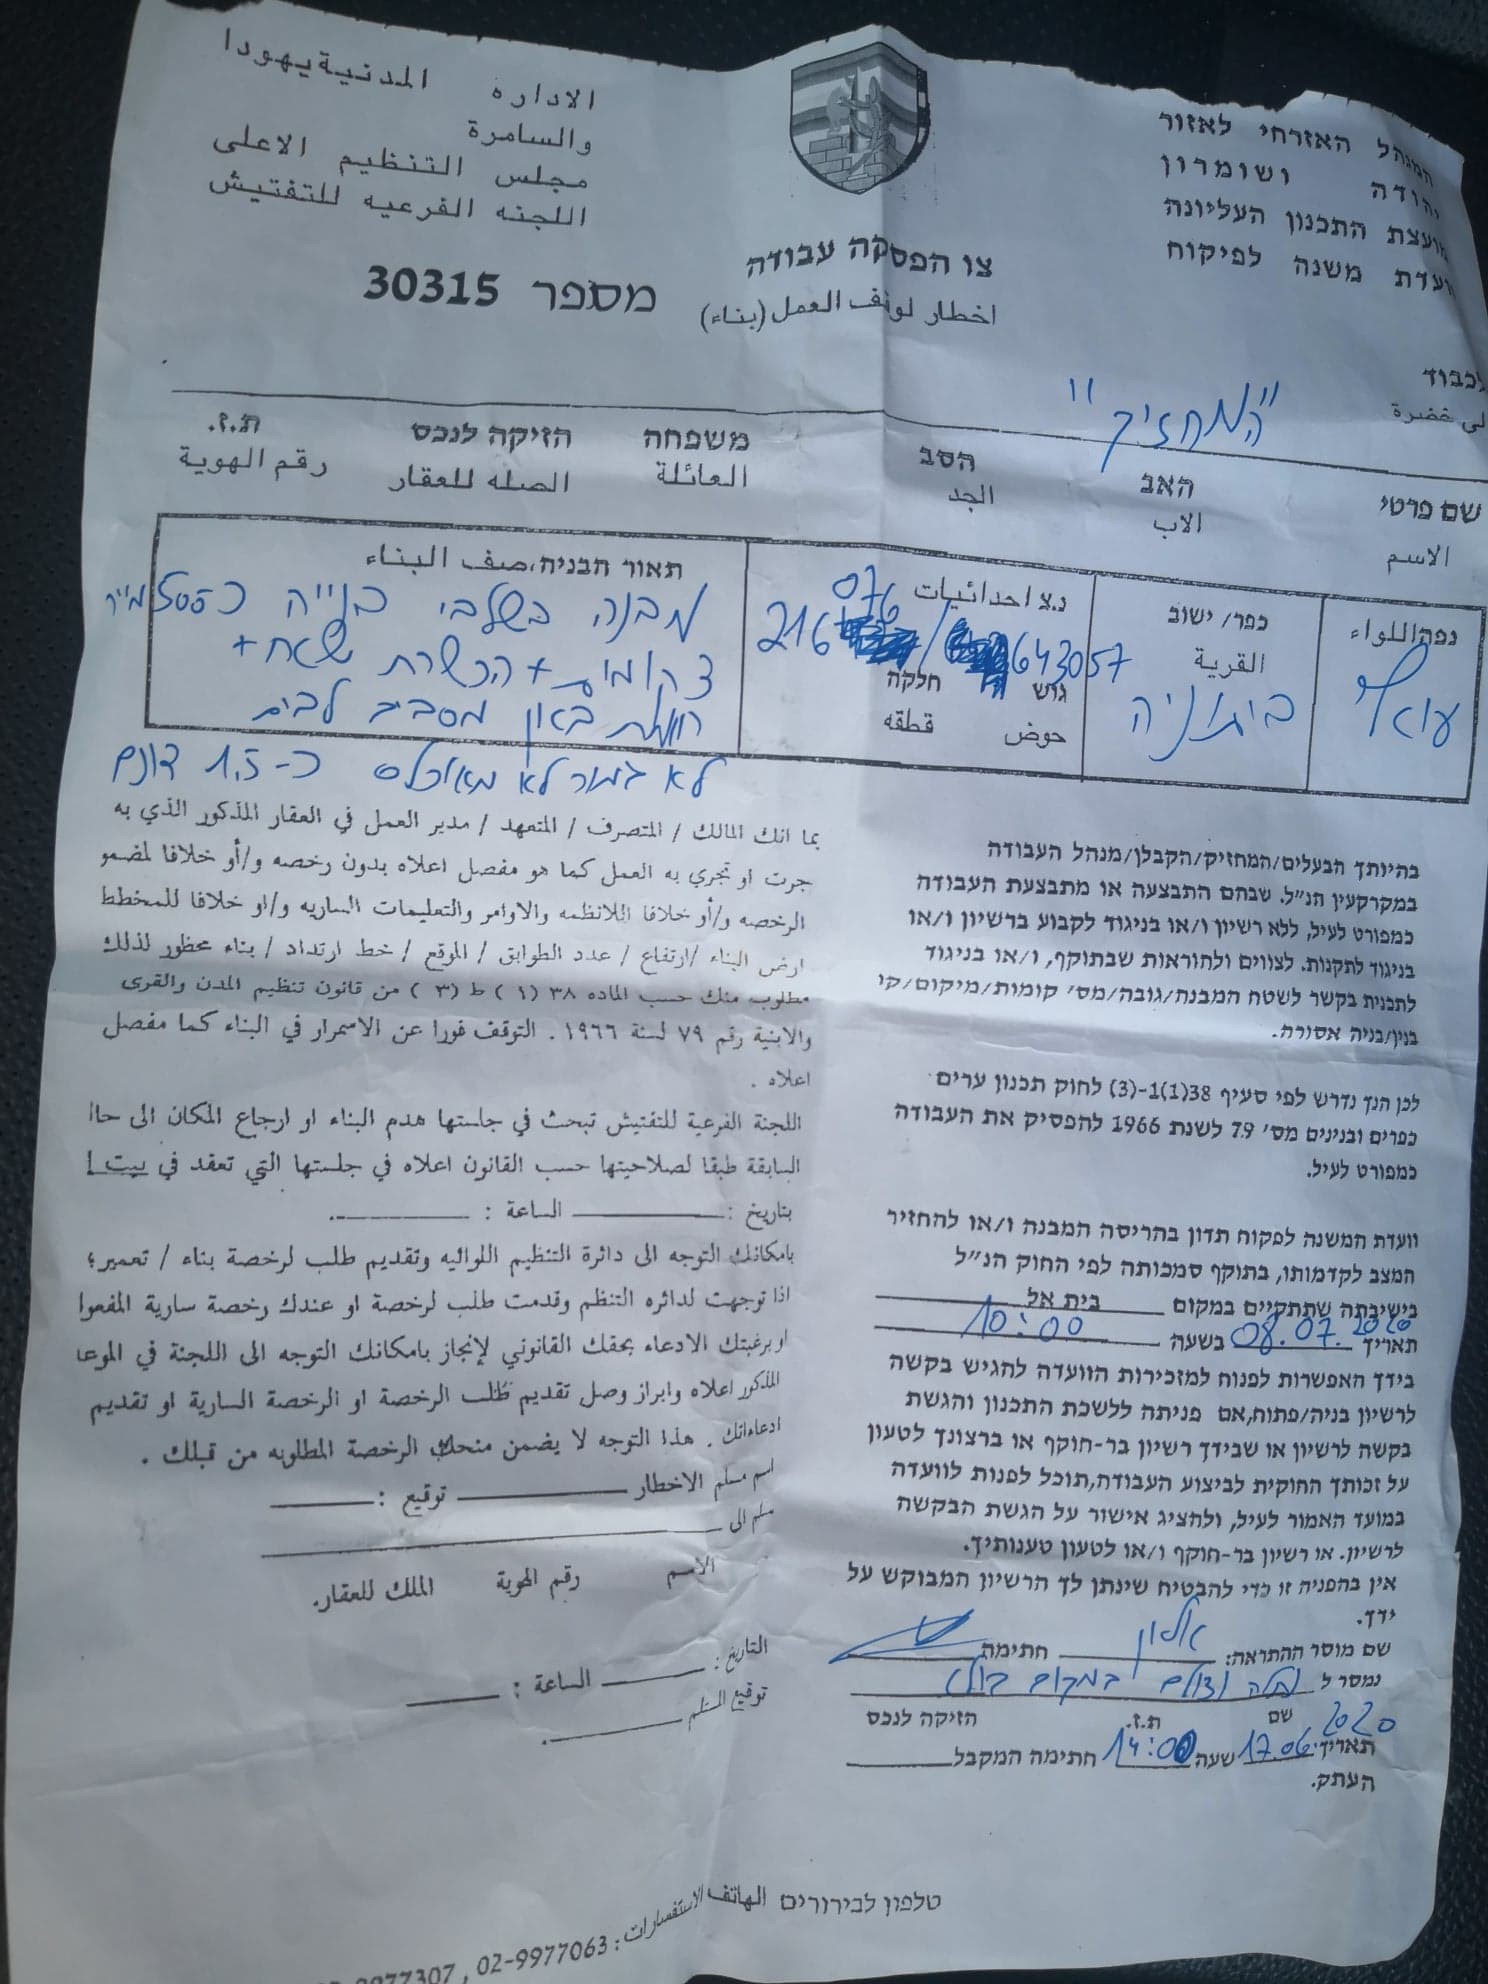 המנהל האזרחי לאזור
יהודה ושומרון
מועצת התכנון העליונה
ועדת משנה לפיקוח
الاداره المدنيةيهودا
والسامرة
مجلس التنظيم الاعلى
اللجنه الفرعيه للتفتيش
צו הפסקה עבודה
اخطار لوقف العمل (بناء)
מספר 30315
לכבוד
لى خضرة
"המחזיק"
שם פרטי האב הסב משפחה הזיקה לנכס ת.ז.
الاسم الاب الجد العائلة الصله للعقار رقم الهوية
נפהاللواء
כפר/ ישוב
القرية
ביתוניה
נ.צ احداثيات
076
216 / 643057
גוש חלקה
حوض قطقه
תאור הבניה،صف البناء
מבנה בשלבי בנייה כ 505 מ"ר
2 קומות + הכשרת שטח +
באון מסביב לבית
לא גמור לא מאוכלס כ- 1.5 דונם
בהיותך הבעלים/המחזיק/הקבלן/מנהל העבודה
במקרקעין הנ"ל. שבהם התבצעה או מתבצעת העבודה
כמפורט לעיל, ללא רשיון ו/או בניגוד לקבוע ברשיון ו/או
בניגוד לתקנות. לצווים ולהוראות שבתוקף, ו/או בניגוד
לתכנית בקשר לשטח המבנה/גובה/מס' קומות/מיקום/קו
בנין/בניה אסורה.
לכן הנך נדרש לפי סעיף 38(1)1-(3) לחוק תכנון ערים
כפרים ובנינים מס' 79 לשנת 1966 להפסיק את העבודה
כמפורט לעיל.
וועדת המשנה לפקוח תדון בהריסה המבנה ו/או להחזיר
המצב לקדמותו, בתוקף סמכותה לפי החוק הנ"ל
בישיבתה שתתקיים במקום בית אל
תאריך 08.07.2020 בשעה 10:00
בידך האפשרות לפנות למזכירות הוועדה להגיש בקשה
לרשיון בניה/פתוח,אם פניתה ללשכת התכנון והגשת
בקשה לרשיון או שבידך רשיון בר-חוקף או ברצונך לטעון
על זכותך החוקית לביצוע העבודה,תוכל לפנות לוועדה
במועד האמור לעיל, ולהציג אישור על הגשת הבקשה
לרשיון. או רשיון בר-חוקף ו/או לטעון טענותיך.
אין בהפניה זו כדי להבטיח שינתן לך הרשיון המבוקש על
ידך.
שם מוסר ההתראה: אילון חתימה
נמסר ל נתלה וצולם במקום בולט
שם ת.ז. הזיקה לנכס
תאריך 17.06.2020 שעה 14:00 חתימה המקבל
העתק.
بما انك المالك / المتصرف / المتعهد / مدير العمل في العقار المذكور الذي به
جرت او تجري به العمل كما هو مفصل اعلاه بدون رخصه و/أو خلافا لمضمو
الرخصه و/أو خلافا للانظمه والاوامر والتعليمات الساريه و/او خلافا للمخطط
ارض البناء /ارتفاع / عدد الطوابق / الموقع / خط ارتداد / بناء محظور لذلك
مطلوب منك حسب الماده ٣٨ (١) ط (٣) من قانون تنظيم المدن والقرى
والابنية رقم ٧٩ لسنة ١٩٦٦ . التوقف فورا عن الاسمرار في البناء كما مفصل
اعلاه .
اللجنة الفرعية للتفتيش تبحث في جلستها هدم البناء او ارجاع المكان الى حاا
السابقة طبقا لصلاحيتها حسب القانون اعلاه في جلستها التي تعقد في بيت ا
بتاريخ : الساعة :
بامكانك التوجه الى دائرة التنظيم اللوائيه وتقديم طلب لرخصة بناء / تعمير؛
اذا توجهت لدائره التنظم وقدمت طلب لرخصة او عندك رخصة سارية المفعوا
او برغبتك الادعاء بحقك القانوني لإنجاز بامكانك التوجه الى اللجنة في الموعا
المذكور اعلاه وابراز وصل تقديم طلب الرخصة او الرخصة السارية او تقديم
ادعاءاتك . هذا التوجه لا يضمن منحك الرخصة المطلوبه من قبلك .
اسم مسلم الاخطار توقيع :
سلم الى
الاسم رقم الهوية الملك للعقار.
التاريخ : الساعة :
توقيع المستلم
טלפון לבירורים الهاتف الاستفسارات : 02-9977063 , 9977307